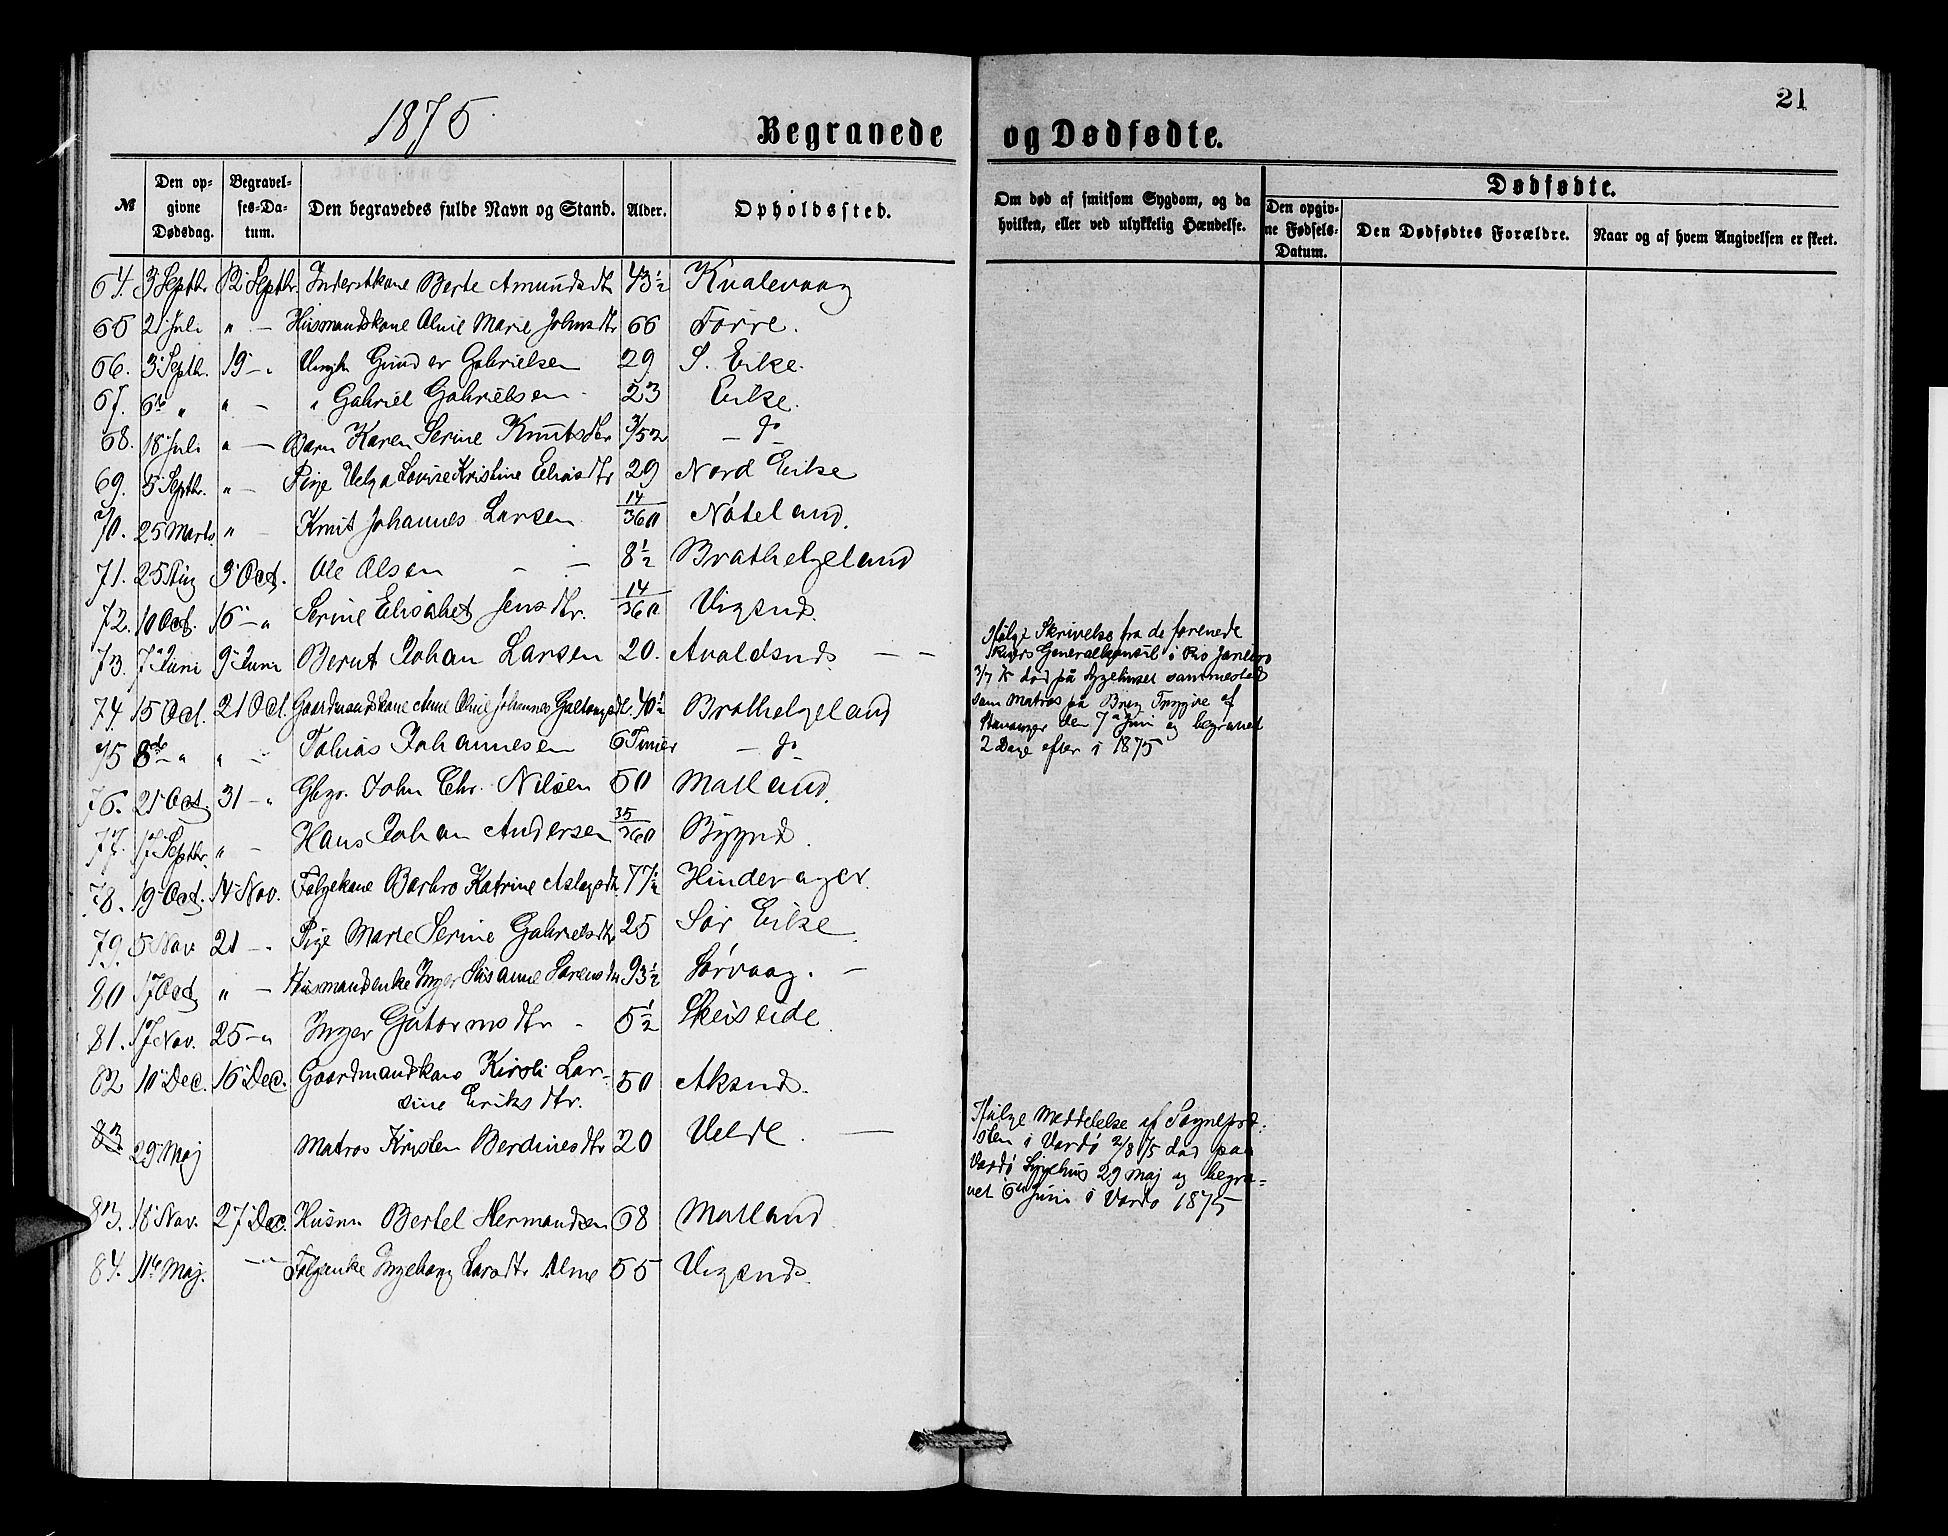 21
1875
Begravede og Dødfødte.
№ Den opgivne Dødsdag. Begravelses-Datum. Den begravedes fulde Navn og Stand. Alder. Opholdssted. Om død af smitsom Sygdom, og da hvilken, eller ved ulykkelig Hændelse.
Dødfødte.
Den opgivne Fødsels-Datum. Den Dødfødtes Forældre. Naar og af hvem Angivelsen er skeet.
64. 3 Septbr. 12 Septbr. Inderstkone Berte Amundsdtr 43½ Kvalevaag
65 21 Juli " — Husmandskone Marie Johnsdtr 66 Førre.
66. 3 Septbr. 19 — " Gunder Gabrielsen 29 S. Eike.
67. 6te " " — " Gabriel Gabrielsen 23 Eike.
68. 18 Juli " — Barn Karen Serine Knutsdtr 3/52 — do
69. 5 Septbr. " — Pige Helga Lovise Kristine Eliasdtr 29 Nord Eike
70. 25 Marts " Knut Johannes Larsen 14/360 Nøteland.
71. 25 Aug 3 Oct. Ole Olsen — — 8½ Brathelgeland
72. 10 Oct. 16 — " Serine Elisabet Jensdtr. 14/360 Vigsnes.
73. 7 Juni 9 Juni Berent Johan Larsen 20. Avaldsnes — —
Ifølge Skrivelse fra de forenede
Rigers Generalkonsul i Rio Janeiro
3/7 75 død på Sygehuset sammesteds
som Matros på Brig Trygve af
Stavanger den 7de Juni og begravet
2 Dage efter i 1875
74. 15 Oct. 21 Oct. Gaardmandskone Anne Johannes 40½ Brathelgeland
75 8de — " " — Tobias Johannesen 6 Timer — do
76. 21 Oct. 31 — " Gbgr. John Chr. Nilsen 50 Matland.
77. 17 Septbr. " — Hans Johan Andersen 35/360 Bygnes.
78. 19 Oct. 14 Nov. Folgekone Barbro Katrine Aslagsdtr 77½ Hinderager
79. 5 Nov 21 — " Pige Marte Serine Gabrielsdtr 25 Sør Eike
80 17 Oct. " — Husmandsenke Inger Susanne Sørensdtr 93½ Sørvaag. —
81. 17 Nov. 25 — " Inger Gutormsdtr — 5½ Skeiseide
82 10 Dec. 16 Dec. Gaardmandskone Kirsti Lar-
sine Eriksdtr. 50 Aksnes.
83 29 Maj Matros Kristen Berdinesdtr 20 Velde. —
Ifølge Meddelelse af Sognepræ-
sten i Vardø 2/8 75 død paa
Vardø Sygehus 29 Maj og begra-
vet 6te Juni i Vardø 1875
83. 18 Nov. 27 Dec. Husm Bertel Hermandsen 68 Matland
84. 11te Maj. — " Folgeenke Ingeborg Larsdtr 55 Vigsnes.